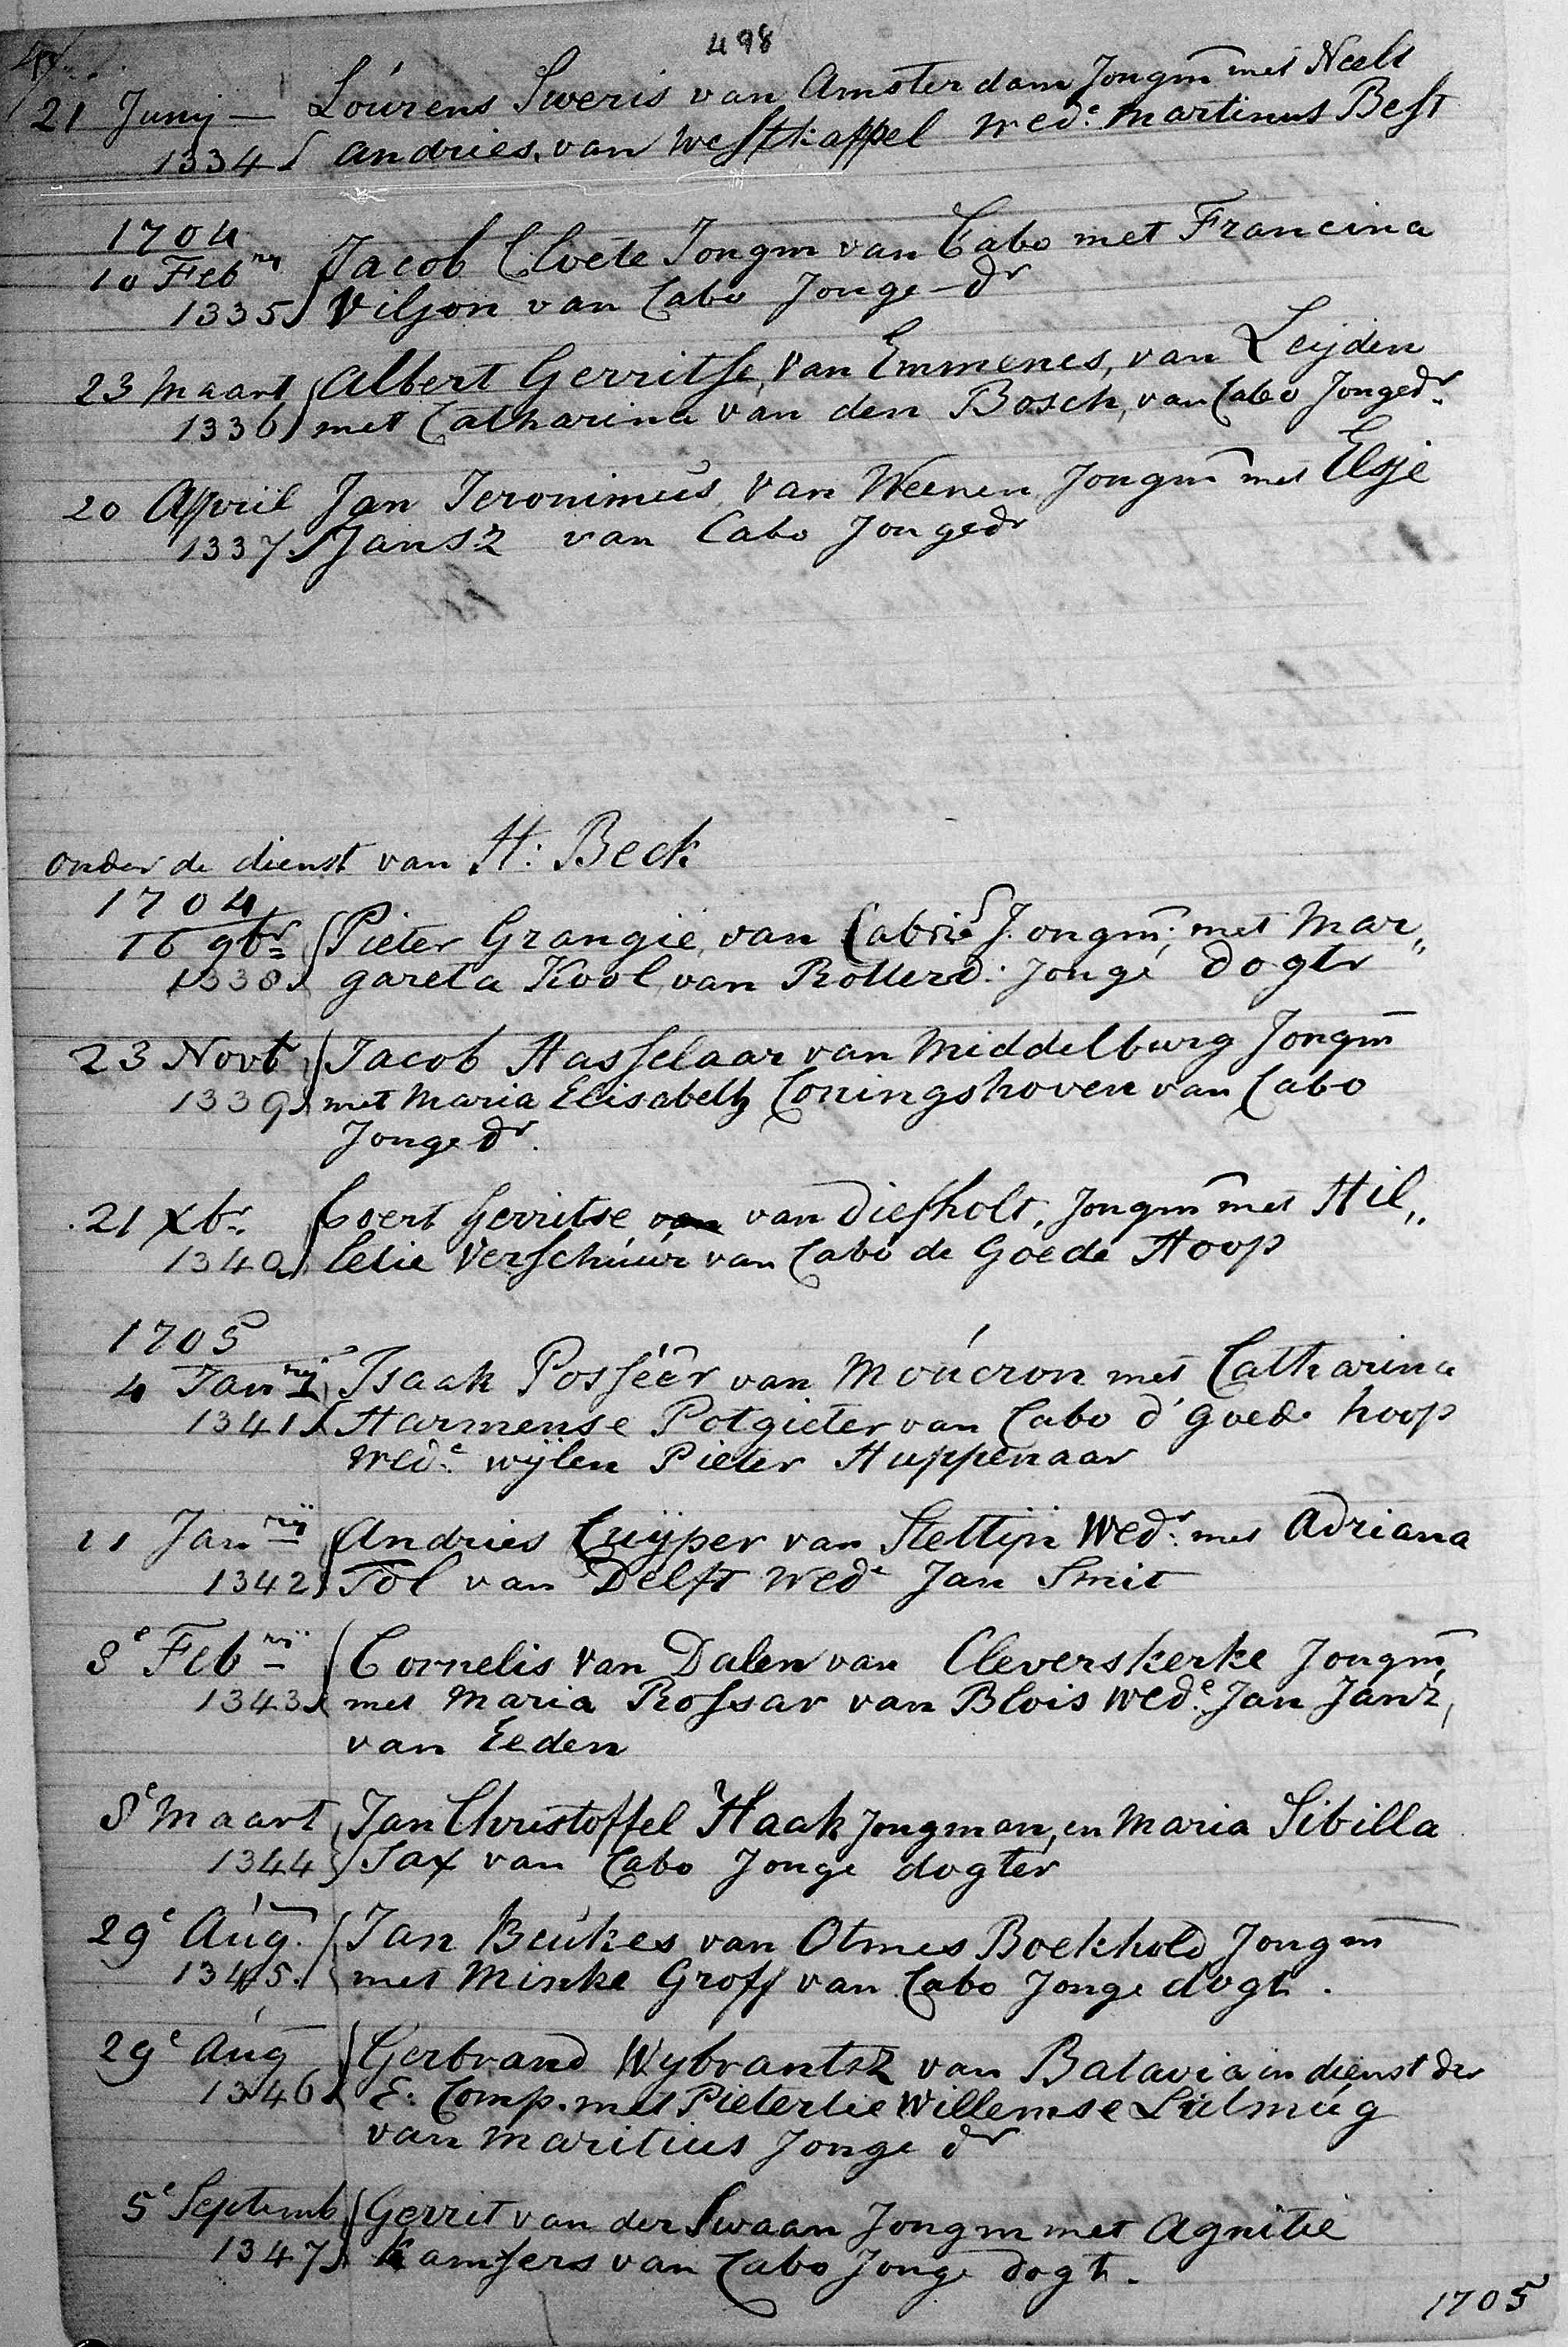 498
21 Junij — Lourens Sweris van Amsterdam Jongm̄ met Neels
1334 Andries van Westkappel Wede. Martinus Best
1704
10 Febry Jacob Cloete Jongm van Cabo met Francina
1335 Viljon van Cabo Jonge dr
23 Maart Albert Gerritse, van Emmenes, van Leijden
1336 met Catharina van den Bosch, van Cabo Jongedr.
20 Appril Jan Jeronimus van Weenen Jongm̄ met Elsje
1337 Jansz van Cabo Jongedr
onder de dienst van H: Beck
1704
16 9br Pieter Grangie, van Cabrie Jongm̄: met Mar„
1338 gareta Kool, van Rotterd: Jonge dogtr
23 Novb Jacob Hasselaar van Middelburg Jongm̄
1339 met Maria Elisabeth Coningshoven van Cabo
Jonge dr.
21 xbr Coert Gerritse van Diepholt, Jongm̄ met Hil„
1340 letie Verschuúr van Cabo de Goede Hoop
1705
4 Janry Isaak Posseêr van Moúcron met Catharina
1341 Harmense Potgieter van Cabo d' goede hoop
Wede. wijlen Pieter Huppenaar
11 Janrij Andries Cuijper van Stettijn Wedr. met Adriana
1342 Tol van Delft Wede Jan Smit
8e Febrij Cornelis van Dalen van Cleverskerke Jongm̄
1343 met Maria Rossar van Blois Wede. Jan Janz,
van Eeden
8e Maart Jan Christoffel Haak Jongman, en Maria Sibilla
1344 Sax van Cabo Jonge dogter
29e Aúg. Jan Beúkes van Otmes Boekhold Jongm̄
1345. met Minke Groff van Cabo Jonge dogt.
29e Aúg Gerbrand Wybrantsz van Batavia in dienst der
1346 E: Comp. met Pietertie Willemse Lútmúg
van Maritius Jonge dr
5e Septemb Gerrit van der Swaan Jongm met Agnitie
1347 Kamfers van Cabo Jonge dogt.
1705